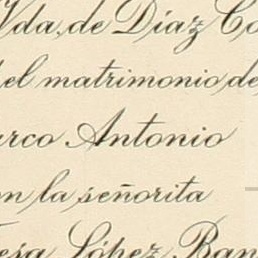 Vda, de Díaz Co
el matrimonio de
arco Antonio
on la señorita
esa López Ban